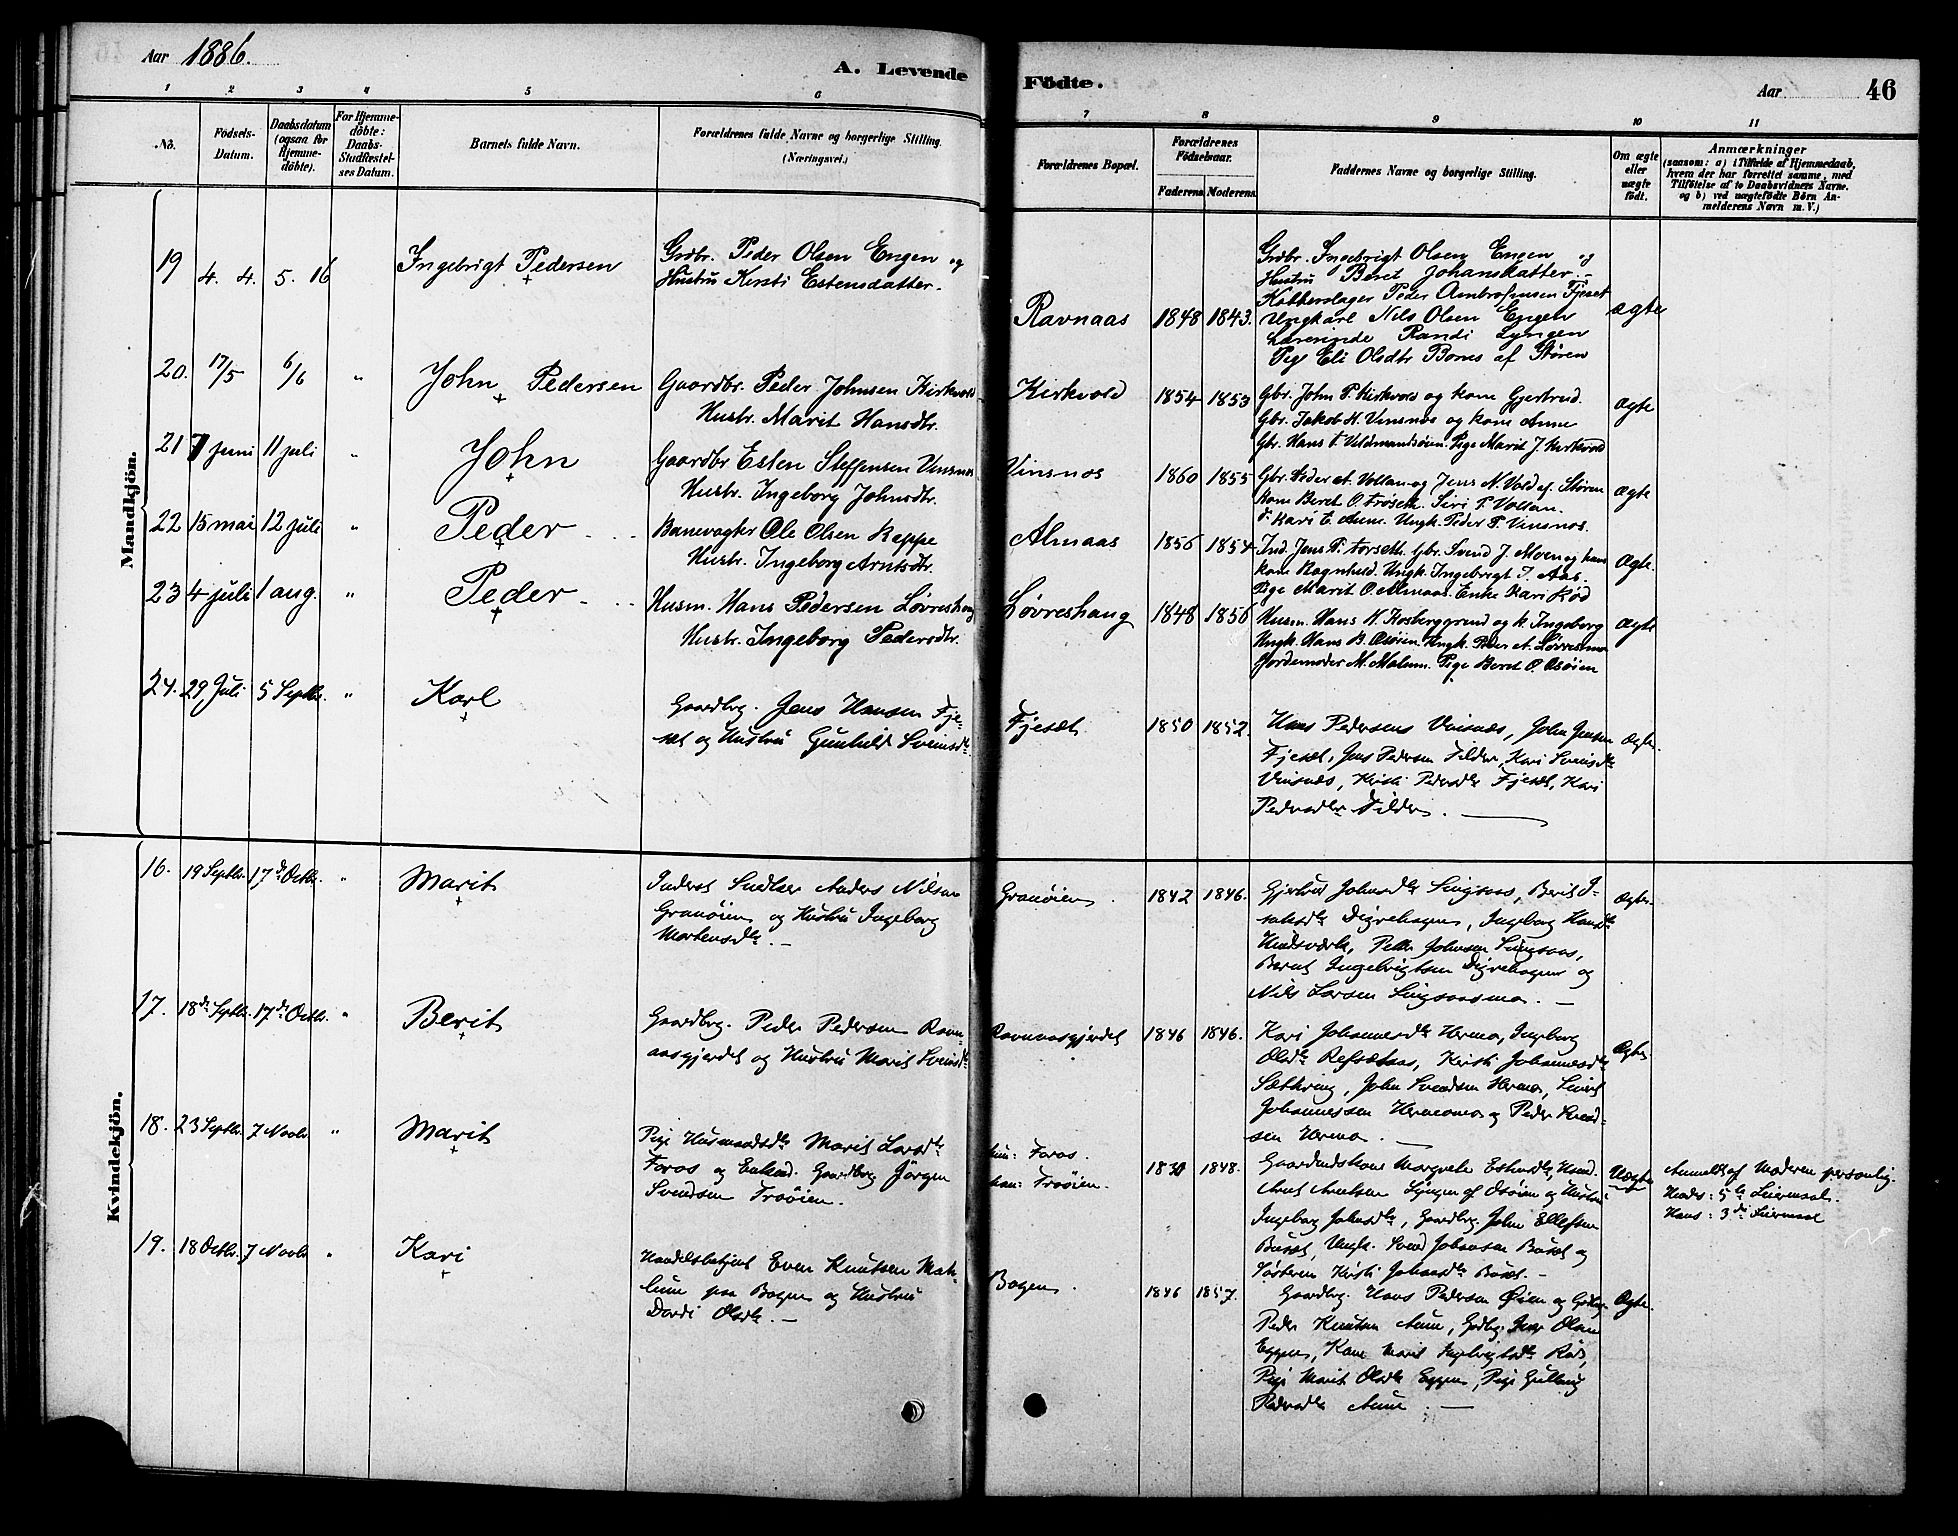 Aar 1886.
A. Levende Födte.
Aar
46
1 2 3 4 5 6 7 8 9 10 11
No.
Födsels-Datum.
Daabsdatum (ogsaa for Hjemme-döbte).
For Hjemme-döbte: Daabs-Stadfæstel-ses Datum.
Barnets fulde Navn.
Forældrenes fulde Navne og borgerlige Stilling.
(Næringsvei.)
Forældrenes Bopæl.
Forældrenes Födselsaar.
Faderens Moderens
Faddernes Navne og borgerlige Stilling.
Om ægte eller uægte födt.
Anmærkninger
(saasom: a) i Tilfælde af Hjemmedaab,
hvem der har forrettet samme, med
Tilföielse af to Daabsvidners Navne.
og b) ved uægtefödte Börn An-
melderens Navn m. V.)
Mandkjön.
19 4. 4. 5. 16 Ingebrigt Pedersen
Grdbr. Peder Olsen Engen og
Hustru Kersti Estensdatter.
Ravnaas 1848 1843.
Grdbr. Ingebrigt Olsen Engen og
Hustru Beret Johansdatter.
Kobberslager Peder Fjeset
Ungkarl Nils Olsen Engen
Lærerinde Randi Lyngen
Pige Eli Olsdtr Bones af Støren
ægte
20. 17/5 6/6 " John Pedersen
Gaardbr. Peder Johnsen Kirkvold
Hustr. Marit Hansdtr.
Kirkvold 1854 1853
Gbr. John P. Kirkvold og kone Gjertrud.
Gbr. Jakob H. Vinsnes og kone Anne
Gbr. Hans Pige Marit J. Kirkvold
ægte
21 7 juni 11 juli " John
Gaardbr Esten Steffensen Vinsnes
Hustr. Ingeborg Johnsdtr.
Vinsnos 1860 1855
Gbr. Peder Vollan og Jens N. Vold af Støren
kone Beret O. Siri P. Vollan.
Kari E. Aune. Ungk. Peder P. Vinsnos.
ægte
22 15 mai 12 juli " Peder
Banevagter Ole Olsen Keppe
Hustr. Ingeborg Arntsdtr.
Almaas 1856 1854
Ind. Jens P. Forseth. Gbr. Svend J. Moen og hans
kone Ragnhild. Ungk. Ingebrigt I. Aas.
Pige Marit O. Almaas. Enke Kari Rød
Ægte.
23 4 juli 1 aug. " Peder
Husm. Hans Pedersen Løvreshaug
Hustr. Ingeborg Pedersdtr.
Løvreshaug 1848 1856
Husm. Hans N. Kosberggrind og k. Ingeborg
Ungk. Hans B. Osøien. Ungk. Peder
Jordemoder M. Malum. Pige Beret O. Osøien
Ægte
24. 29 Juli 5 Septbr. " Karl
Gaardbrg. Jens Hansen Fje-
sæt og Hustru Gunhild Svensdtr.
Fjesæt 1850 1852.
Hans Pedersens Vinsnæs, John Jensen
Fjesæt, Jens Pedersen Kari
Vinsnæs, Kirsti Pedersdtr Fjesæt, Kari
Pedersdtr
Ægte.
Kvindekjön.
16. 19 Septbr. 17de Octbr. " Marit
Inderst Anders Nilsen
Granøien og Hustru Ingeborg
Mortensdtr. —
Granøien. 1842 1846.
Gjertrud Johnsdtr Singsaas, Berit I-
saksdtr Digrehagen, Ingeborg Hansdtr
Peter Johnsen Singsaas,
Bernt Ingebrigtsen Digrehagen og
Nils Larsen Singsaasmo. —
Ægte.
17. 18de Septbr. 17de Octbr. " Berit
Gaardbrg. Peder Pedersen Ravn-
aasgjerdet og Hustru Marit Svendsdtr
Ravnaasgjerdet 1846 1846.
Kari Johannesdtr Hermo, Ingeborg
Olsdtr Refsetaas, Kirsti Johannesdtr
John Svendsen Hermo, Sivert
Johannessen Hermo og Peder Svend-
sen Hermo. —
Ægte
18. 23 Septbr. 7 Novbr. " Marit
Pige Husmandsdtr Marit Larsdtr
Foros og Enkemd. Gaardbrg Jörgen
Svendsen Troøien.
hun: Foros.
han: Troøien.
1831 1848.
Gaardmdskone Margrete Estensdtr, Husmd.
Arnt Arntsen Lyngen af Osøien og Hustru
Ingeborg Johnsdtr, Gaardbrg. John Ellefsen
Buset, Ungk. Svend Johansen Buset og
Søsteren Kirsti Johansdtr Buset. —
Uægte
Anmeldt af Moderen personlig.
Hendes: 5te Leiermaal.
Hans: 3de Leiermaal
19. 18 Octbr. 7 Novbr " Kari
Handelsbetjent Even Knutsen Mah-
lum paa Bogen og Hustru
Dordi Olsdtr. —
Bogen. 1846 1857.
Gaardbrg. Hans Pedersen Øien og Gdbrg.
Peder Knutsen Aune, Gdbrg. Jens Olsen
Eggen, Kone Marit Ingebrigtsdtr Röe,
Pige Marit Olsdtr Eggen, Pige Gulbrig
Pedersdtr Aune. —
Ægte.